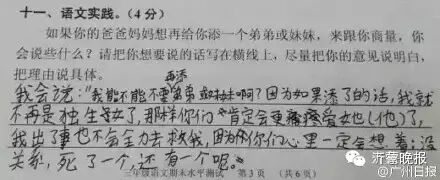 十一、语文实践。（4分）
如果你的爸爸妈妈想再给你添一个弟弟或妹妹，来跟你商量，你
会说些什么？请把你想要说的话写在横线上，尽量把你的意见说明白，
把理由说具体。
再添
我会说："我能不能不要弟弟或妹妹啊？因为如果添了的话，我就
不再是独生子女了，那样你们"肯定会更疼爱她（他）了，
我出了事也不会全力去救我，因为你们心里一定会想着：没
关系，死了一个，还有一个呢。"
三年级语文期末水平测试 第3页（共6页）
沂蒙晚报
@广州日报